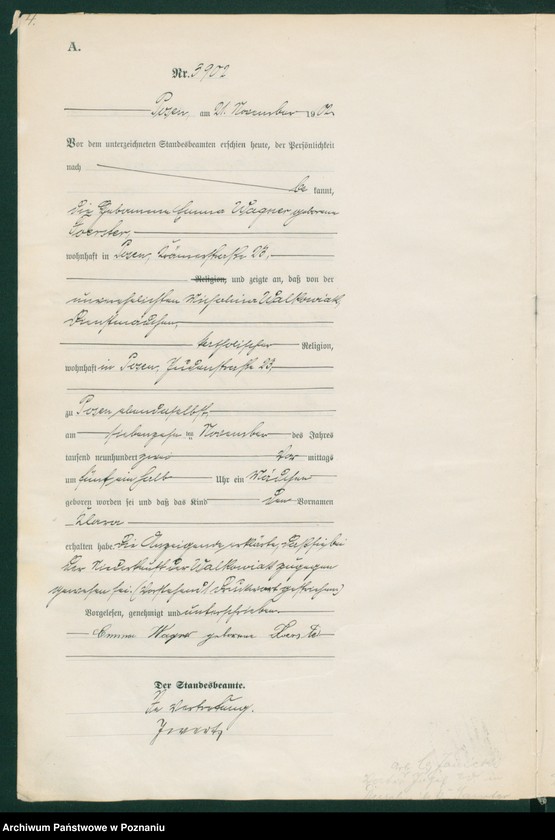 4.
A.
Nr. 3902
Posen, am 21. November 1902
Vor dem unterzeichneten Standesbeamten erschien heute, der Persönlichkeit
nach
be kannt,
die Hebamme Emma Wagner geborene
wohnhaft in Posen, Krämerstraße 23,
Religion, und zeigte an, daß von der
unverehelichten Walkowiak,
Dienstmädchen,
katholischer Religion,
wohnhaft in Posen, Judenstraße 23,
zu Posen, ebendaselbst,
am siebenzehnten November des Jahres
tausend neunhundert zwei Vor mittags
um fünf ein halb Uhr ein Mädchen
geboren worden sei und daß das Kind den Vornamen
Klara
erhalten habe. Die Anzeigende erklärte, daß sie bei
der Niederkunft der Walkowiak zugegen
gewesen sei. (Vorstehend 1 Druckwort gestrichen)
Vorgelesen, genehmigt und unterschrieben
Emma geborene
Der Standesbeamte.
In Vertretung.
Archiwum Państwowe w Poznaniu